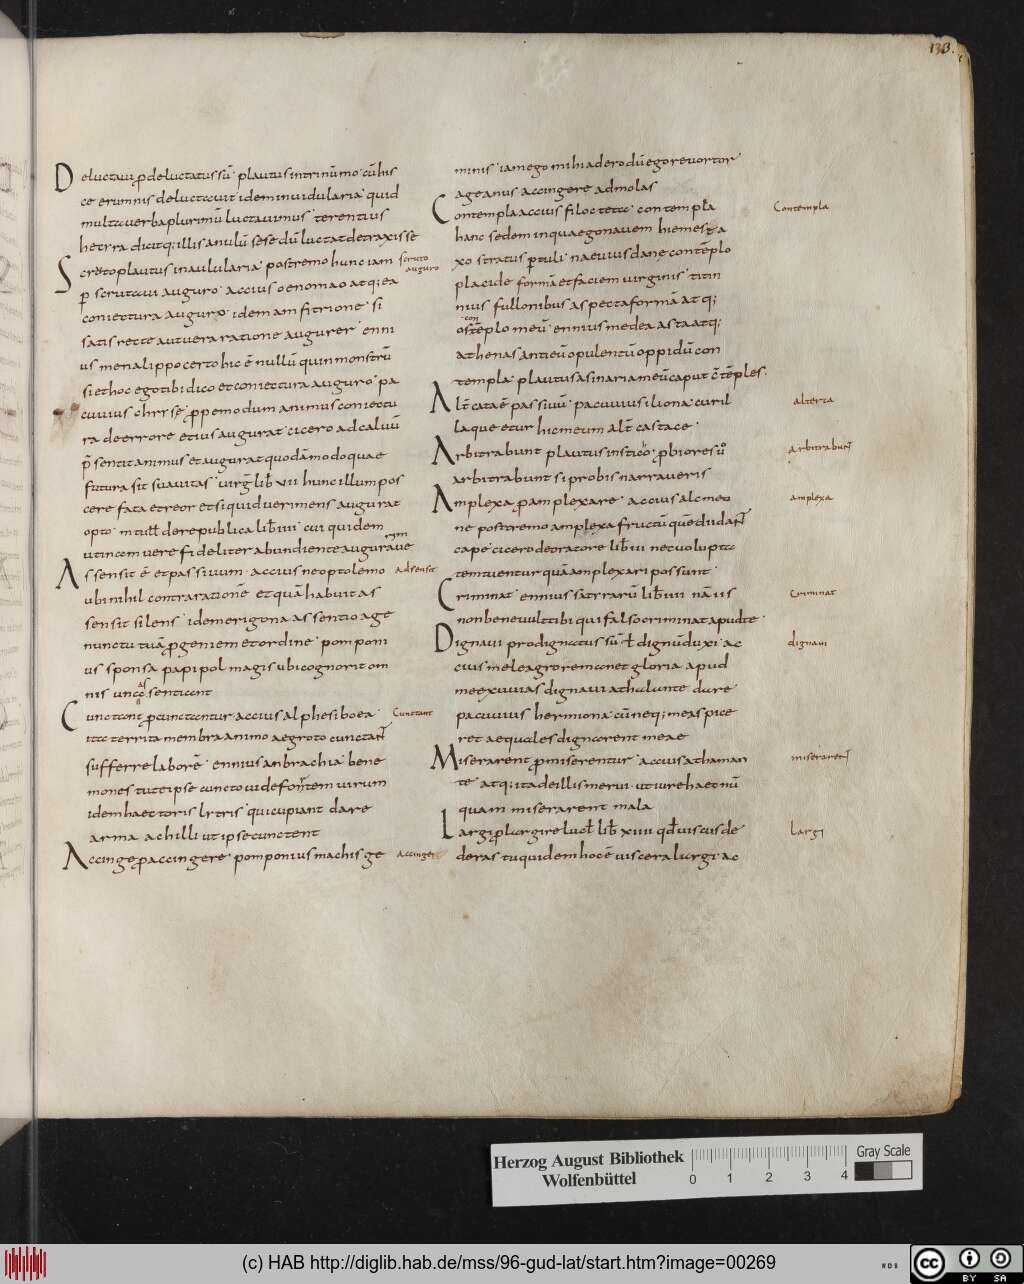 133.
Deluctaui ꝓ deluctatus sū plautus in trinūmo cū his
ce erumnis deluctauit idem in uidularia quid
multa uerba plurimū luctauimus terentius
hetyra dicitq; illis anulū sese dū luctat detraxisse
Scruto plautus in aulularia postremo hunc iam
p scrutaui auguro accius oenomao atq; ea
coniectura auguro idem amfitrione si
satis recte aut uera ratione augurer enni
us menalippo certo hic ē nullū quin monstrū
si ethoc ego tibi dico et coniectura auguro pa
cuuius chrise ꝓpemodum animus coniectu
ra de errore eius augurat cicero ad caluū
p̄sentit animus et augurat quodāmodo quae
futura sit suauitas uirg lib vii hunc illum pos
cere fata et reor et si quid ueri mens augurat
opto m tull de republica lib iiii cui quidem
utinam uere fideliter abundiente auguraue
Assensit ē et passiuum accius neoptolemo
ubi nihil contra rationē et quā habuit as
sensit silens idem erigona assentio age
nunctu tuā ꝓgeniem et ordine pomponi
us sponsa papi pol magis ubi cognorit om
nis unco sentiant
Cunctant ꝓ cunctantur accius alphesiboea
ita territa membra animo aegroto cunctant
sufferre laborē ennius anbrachia bene
mones tute ipse cuncto uide fortem uirum
idem haectoris lytris qui cupiant dare
arma achilli ut ipse cunctent
Accinge ꝓ accingere pomponius machis ge
scruto
auguro
rim
Adsensit
Cunctant
Accinger
minis iam ego mihi adero dū ego reuortor
age anus accingere ad molas
Contempla accius filocteta contempla
hanc sedem in qua ego nauem hiemes sa
xo stratus ptuli naeuius danae contēplo
placide formā et faciem uirginis titin
nius fullonibus aspecta formā atq;
con
os tēplo meū ennius medea asta atq;
athenas anticū opulentū oppidū con
templa plautus asinaria meū caput c̄tēples
Alt cata ē passiuū pacuuius iliona curil
la que etur hic meum alt castace
Arbitrabunt plautus in stico ꝓbiores uo
arbitrabunt si probis narraueris
Amplexa ꝓ amplexare accius alcmeo
ne postremo amplexa fructū quē di dant
cape cicero de oratore lib iii nec uolupta
tem tuentur quā amplexari possunt
Criminat ennius satyrarū lib iii nā is
non bene uult tibi qui falso criminat apud te
Dignaui pro dignatus sū ł dignū duxi ac
cius meleagro remanet gloria apud
me exuuias dignaui athalante dare
pacuuius hermiona cū neq; me aspice
ret aequales dignarent meae
Miserarent ꝓ miserentur accius athaman
te atq; ita de illis merui ut iure haec nū
quam miserarent mala
Largi ꝓ largire lucł lib xiiii qđ uiscus de
deras tu quidem hoc ē uiscera largi ac
Contempla
alterca
arbitrabunt
amplexa
Criminat
dignaui
miserarent
largi
Herzog August Bibliothek
Wolfenbüttel
0 1 2 3 4
Gray Scale
(c) HAB http://diglib.hab.de/mss/96-gud-lat/start.htm?image=00269
WDB
cc BY SA